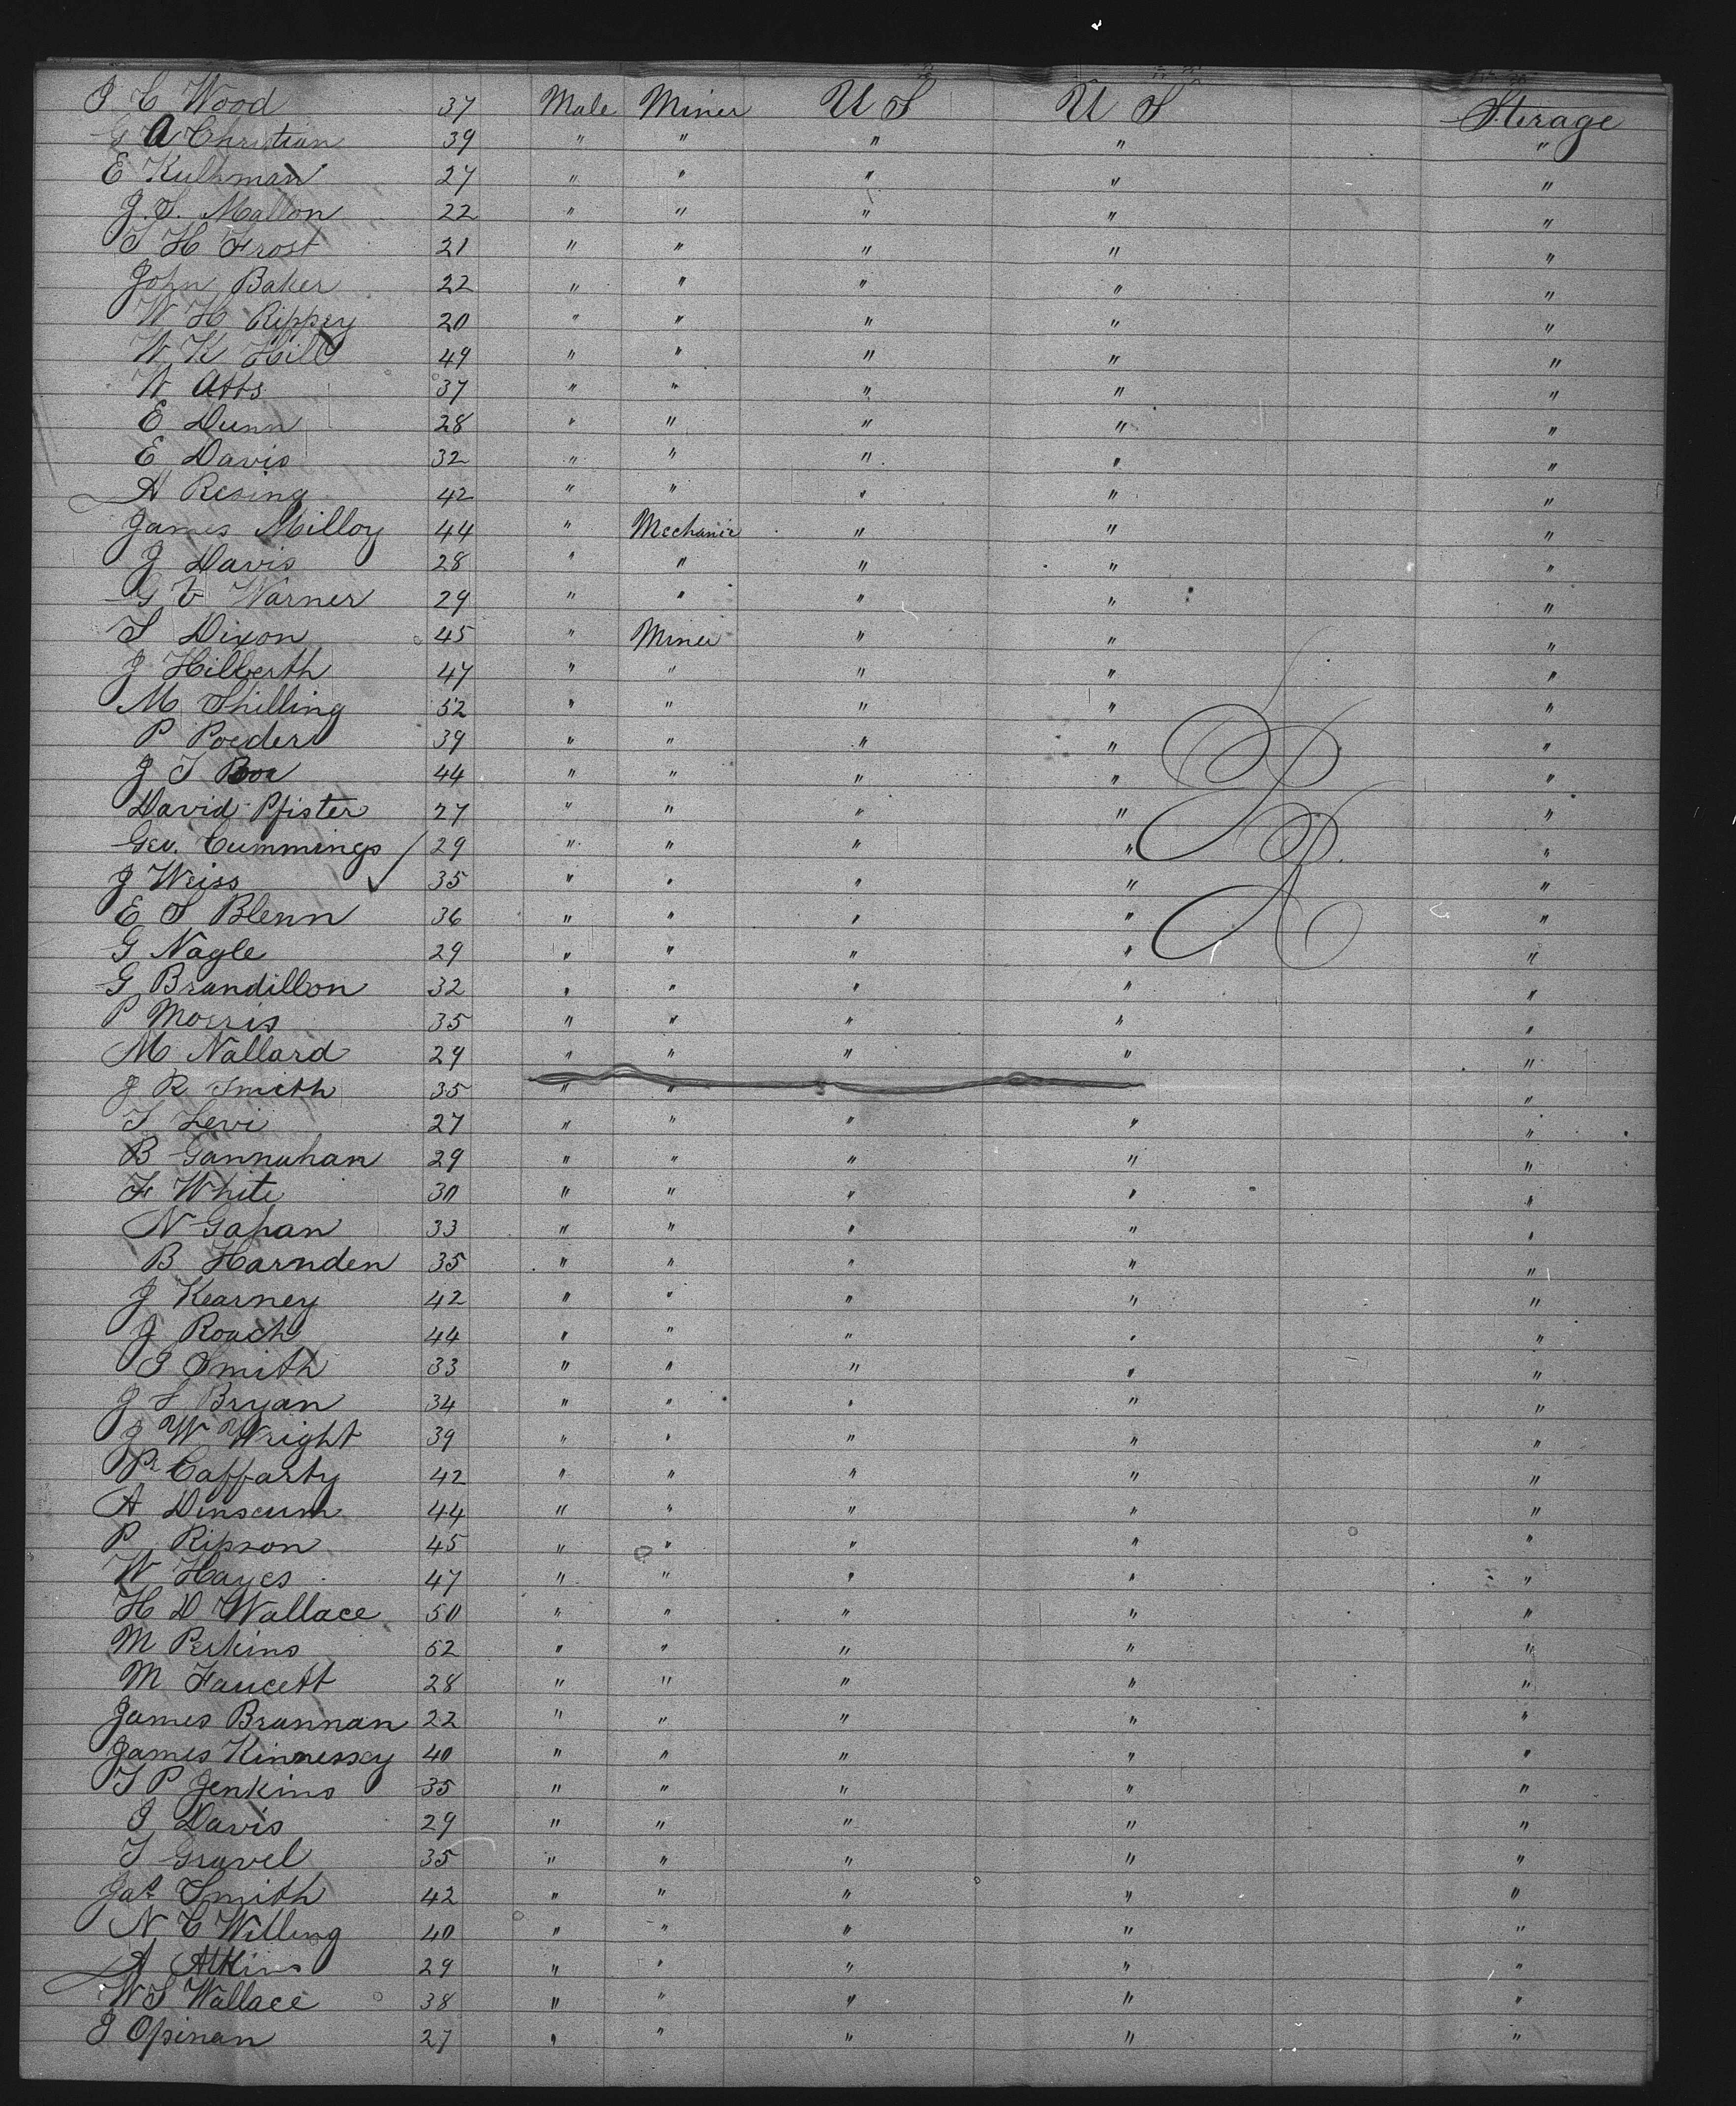 J. C Wood 37 Male Miner U S U S Sterage
G A Christian 39 " " " " "
E Kulhman 27 " " " " "
J. S. Mallon 22 " " " " "
T H Frost 21 " " " " "
John Baker 22 " " " " "
W H Rippey 20 " " " " "
W K Hill 49 " " " " "
W Atts 37 " " " " "
E Dunn 28 " " " " "
E Davis 32 " " " " "
A Resing 42 " " " " "
James Milloy 44 " Mechanic " " "
J Davis 28 " " " " "
G V Warner 29 " " " " "
S Dixon 45 " Miner " " "
J Hilberth 47 " " " " "
M Shilling 52 " " " " "
P Poeder 39 " " " " "
J T Boa 44 " " " " "
David Pfister 27 " " " " "
Geo. Cummings 29 " " " " "
J Weiss 35 " " " " "
E S Blenn 36 " " " " "
G Nagle 29 " " " " "
G Brandillon 32 " " " " "
P Morris 35 " " " " "
M Nallard 29 " " " " "
J R Smith 35 " " "
T Levi 27 " " " " "
B Gannahan 29 " " " " "
F White 30 " " " " "
N Gahan 33 " " " " "
B Harnden 35 " " " " "
J Kearney 42 " " " " "
J Roach 44 " " " " "
J Smith 33 " " " " "
J S Bryan 34 " " " " "
J W Wright 39 " " " " "
P Caffarty 42 " " " " "
A Dinscum 44 " " " " "
P Ripson 45 " " " " "
W Hayes 47 " " " " "
H D Wallace 50 " " " " "
M Perkins 52 " " " " "
M Faucett 28 " " " " "
James Brannan 22 " " " " "
James Kinnessey 40 " " " " "
T P Jenkins 35 " " " " "
J Davis 29 " " " " "
T Gravel 35 " " " " "
Jas Smith 42 " " " " "
N C Willing 40 " " " " "
A Atkins 29 " " " " "
W S Wallace 38 " " " " "
J Opinan 27 " " " " "